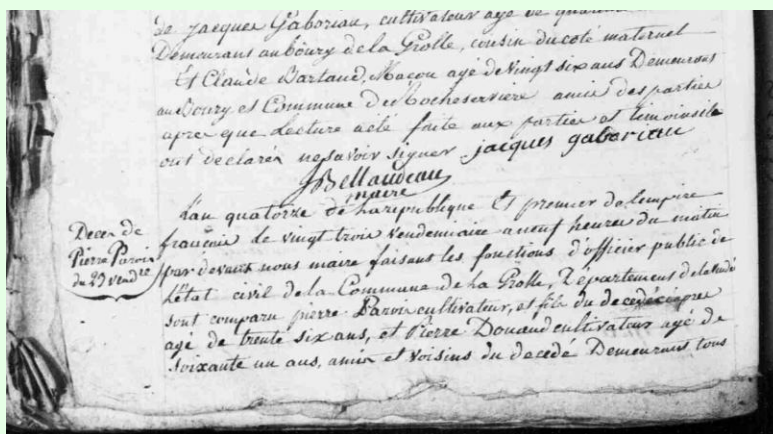 de jacques Gaboriau, cultivateur agé de quarante
Demeurans au bourg de la Grolle, cousin du coté maternel
Et Claude Bartaud, Macon agé de vingt six ans Demeurans
au Bourg et Commune de Rocheserviere amie des partie
apre que Lecture a été faite aux partie et temoins ils
ont declarés ne savoir signer jacques gaboriau
JBellaudeau
maire
Decea de
Pierre Paroix
du 23 vendre
L'an quatorze de la republique Et premier de l'empire
françois le vingt trois vendemiaire a neuf heures du matin
par devant nous maire faisant les fonctions d'officier public de
L'état civil de la Commune de la Grolle, Département de la
sont comparu pierre Paroix cultivateur, et fils du decedé
agé de trente six ans, et Pierre Douaud cultivateur agé de
soixante un ans, amis et voisins du decedé Demeurans tous